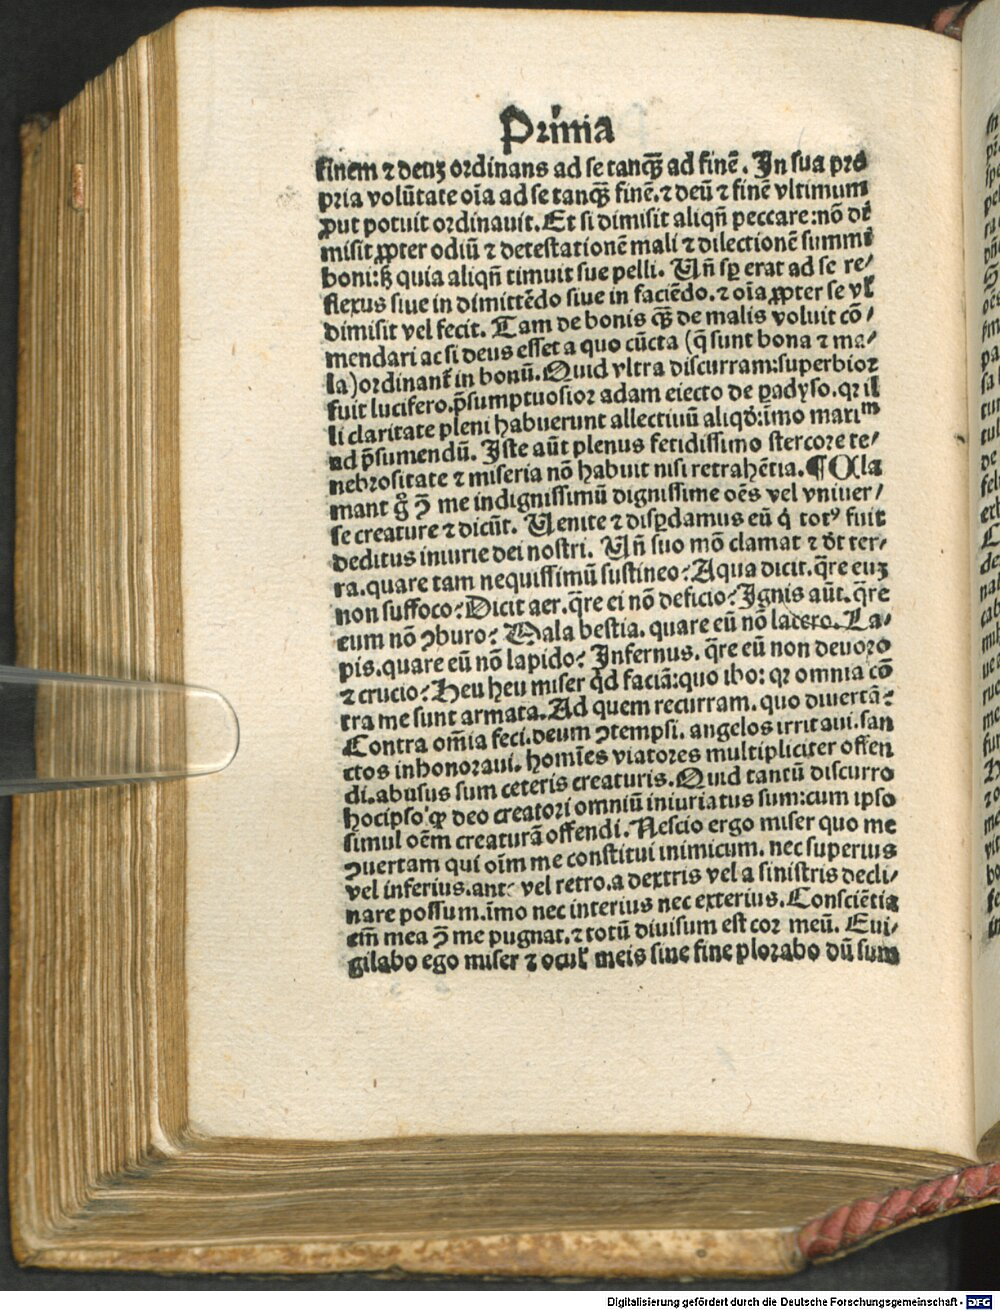 Prima
finem ⁊ deuꝫ ordinans ad se tanqȝ ad finē. In sua pro
pria volūtate oīa ad se tanqȝ finē.⁊ deū ⁊ finē vltimum
ꝓut potuit ordinauit. Et si dimisit aliqn̄ peccare: nō di
misit ꝓpter odiū ⁊ detestationē mali ⁊ dilectionē summi
boni: sȝ quia aliqn̄ timuit sue pelli. Un̄ sꝑ erat ad se re/
flexus siue in dimittēdo siue in faciēdo.⁊ oīa ꝓpter se vl̓
dimisit vel fecit. Tam de bonis qȝ de malis voluit cō/
mendari ac si deus esset a quo cūcta (q̄ sunt bona ⁊ ma/
la) ordinant̄ in bonū. Quid vltra discurram: superbior
fuit lucifero. p̄sumptuosior adam eiecto de ꝑadyso. qꝛ il
li claritate pleni habuerunt allectiuū aliqď: imo maximᵐ
ad p̄sumendū. Iste aūt plenus fetidissimo stercore te/
nebrositate ⁊ miseria nō habuit nisi retrahētia. ¶ Cla
mant g̊ ꝯ̄ me indignissimū dignissime oēs vel vniuer/
se creature ⁊ dicūt. Uenite ⁊ disꝑdamus eū q̇ totꝰ fuit
deditus iniurie dei nostri. Un̄ suo mō clamat ⁊ dt̄ ter/
ra. quare tam nequissimū sustineo? Aqua dicit. q̄re euꝫ
non suffoco? Dicit aer. q̄re ei nō deficio? Ignis aūt. q̄re
eum nō ꝯburo? Mala bestia. quare eū nō lacero. La/
pis. quare eū nō lapido? Infernus. q̄re eū non deuoro
⁊ crucio? Heu heu miser qd̄ faciā: quo ibo: qꝛ omnia cō
tra me sunt armata. Ad quem recurram. quo diuertā?
Contra om̄ia feci. deum ꝯtempsi. angelos irritaui. san
ctos inhonoraui. homīes viatores multipliciter offen
di. abusus sum ceteris creaturis. Quid tantū discurro
hocipso ꝙ deo creatori omniū iniuriatus sum: cum ipso
simul oēm creaturā offendi. Nescio ergo miser quo me
ꝯuertam qui oīm me constitui inimicum. nec superius
vel inferius. ante vel retro. a dextris vel a sinistris decli/
nare possum. imo nec interius nec exterius. Consciētia
em̄ mea ꝯ̄ me pugnat.⁊ totū diuisum est cor meū. Eui/
gilabo ego miser ⁊ ocul̓ meis siue fine plorabo dū sum
Digitalisierung gefördert durch die Deutsche Forschungsgemeinschaft - DFG